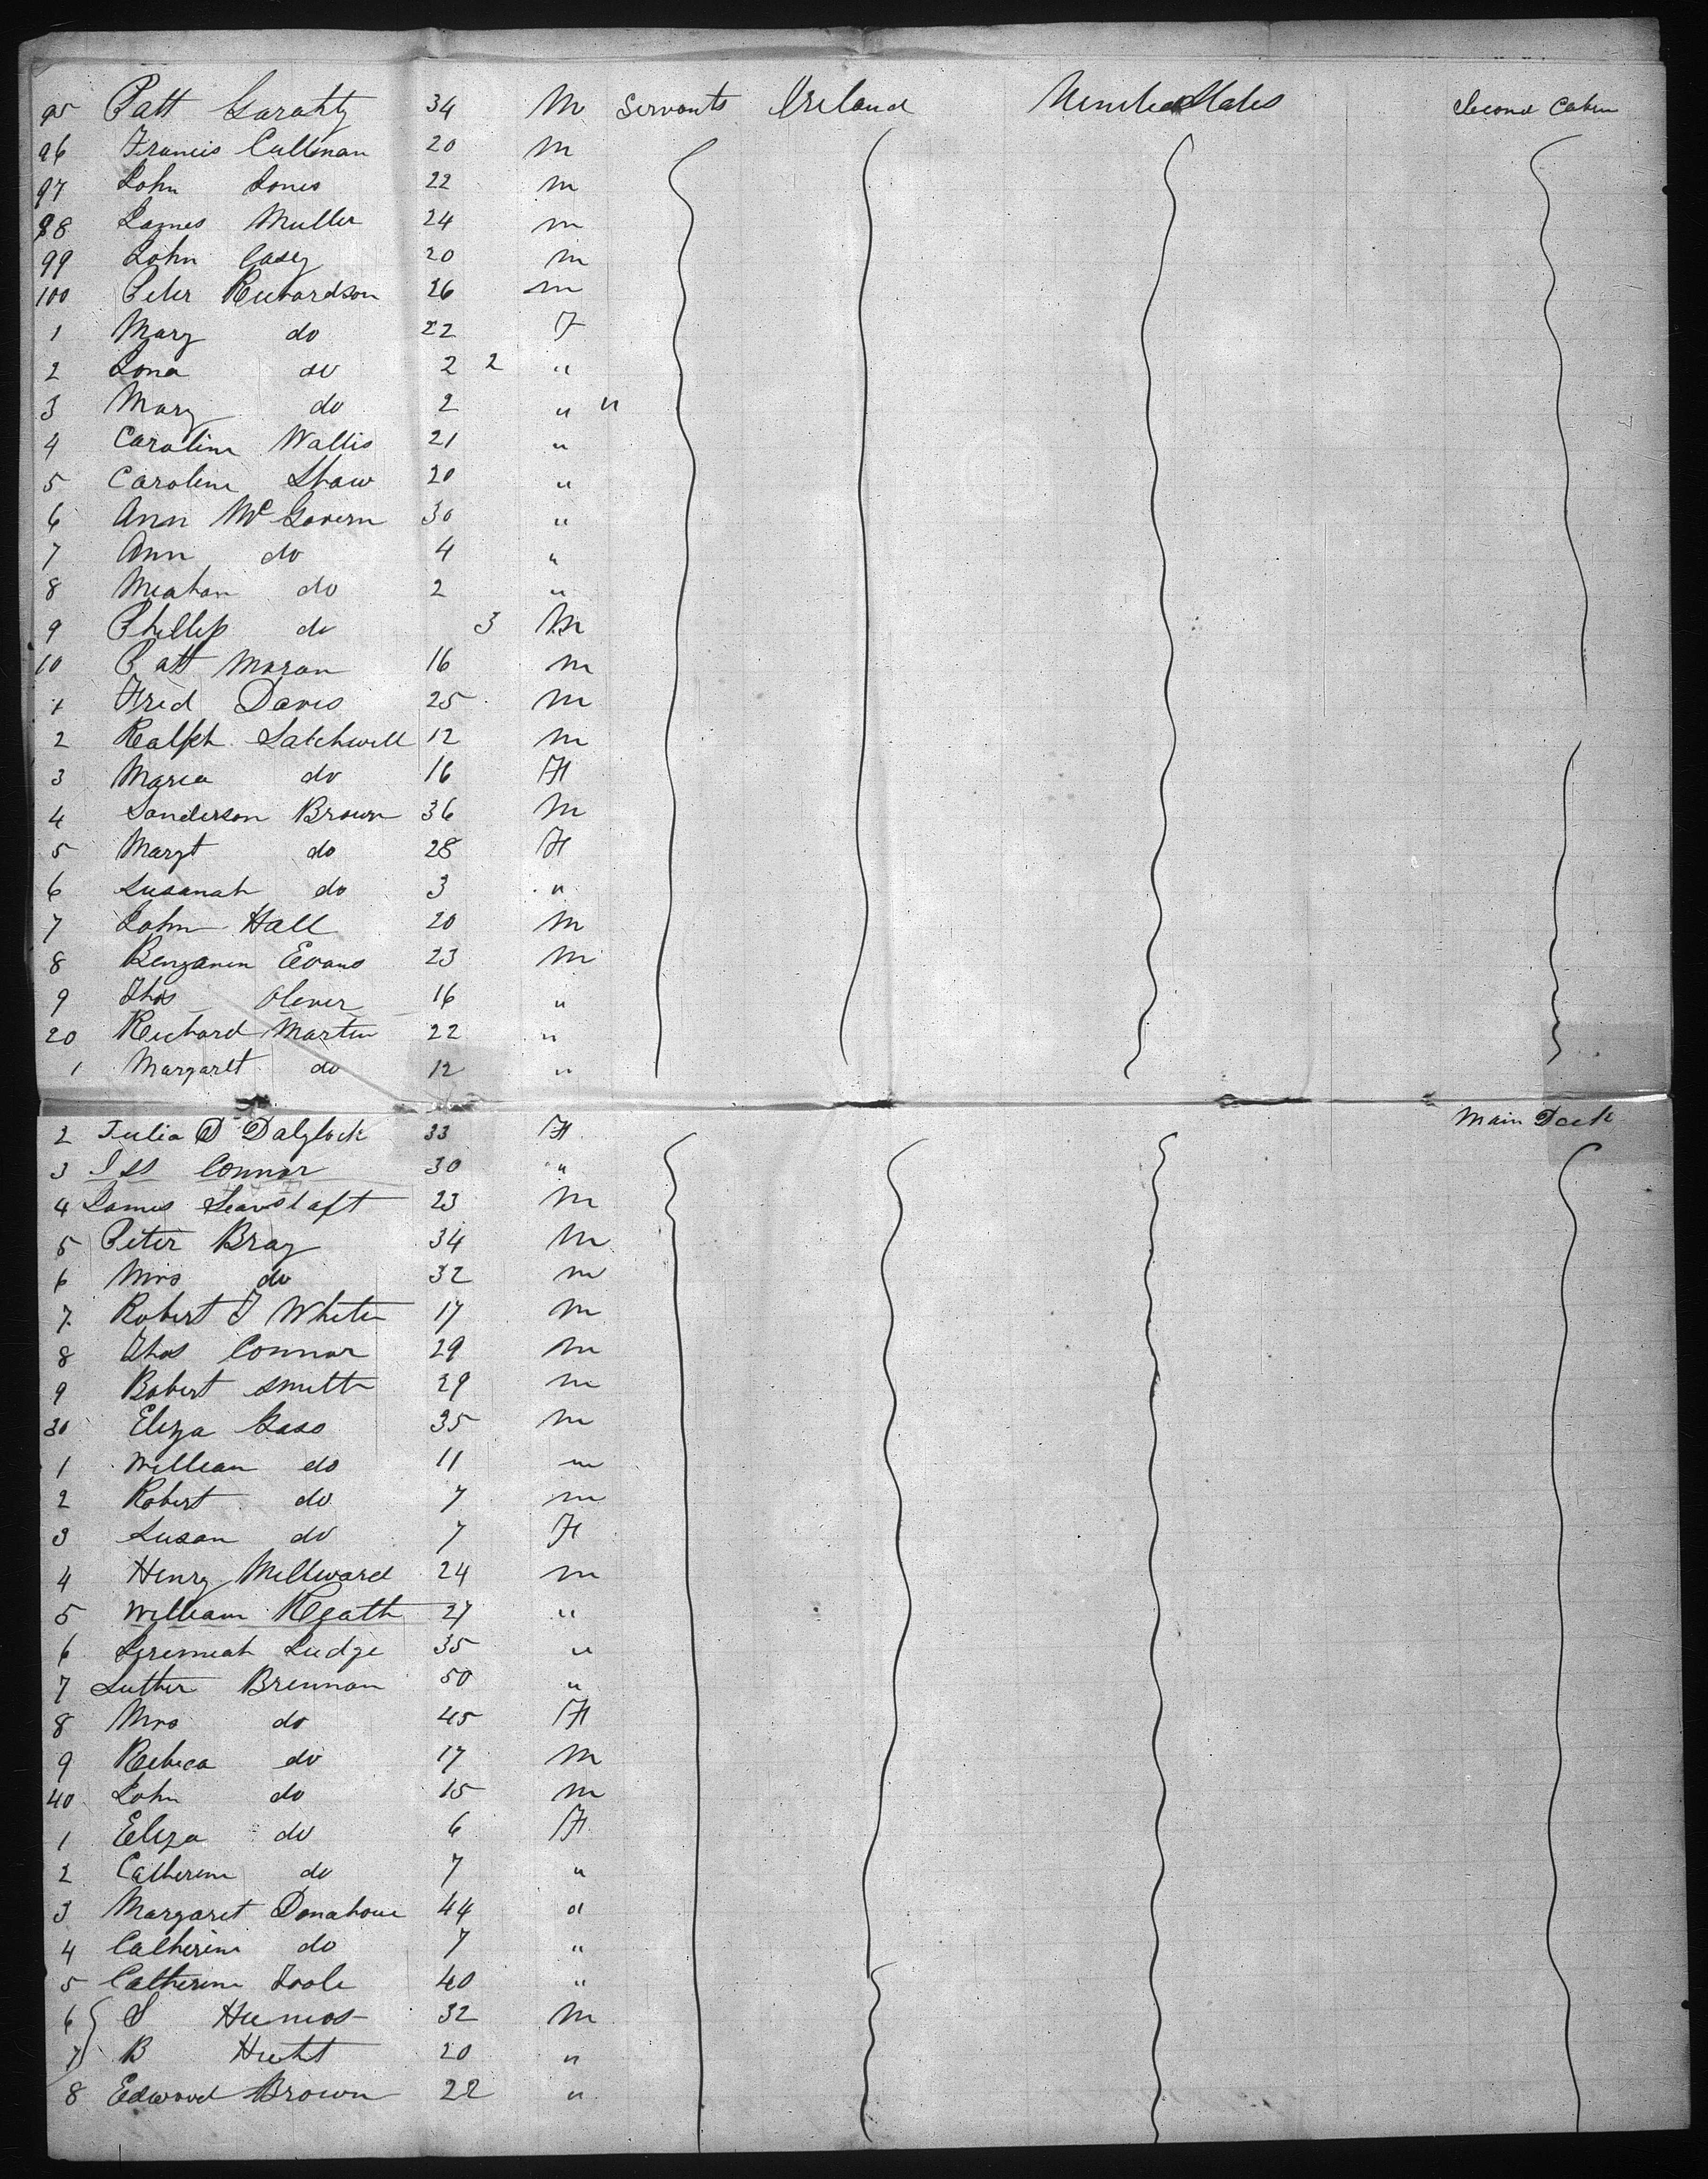 95 Patt Garahty 34 M Servants Ireland United States Second Cabin
96 Francis Cullinan 20 m
97 John Jones 22 m
98 James Muller 24 m
99 John Casey 20 m
100 Peter Richardson 26 m
1 Mary do 22 F
2 do 2 2 "
3 Mary do 2 " "
4 Caroline Wallis 21 "
5 Caroline Shaw 20 "
6 Ann McGovern 30 "
7 Ann do 4 "
8 do 2 "
9 Phillip do 3 M
10 Patt Moran 16 m
1 Fred Davis 25 m
2 Ralph Satchwell 12 m
3 Maria do 16 F
4 Sanderson Brown 36 m
5 Margt do 28 F
6 Susanah do 3 "
7 John Hall 20 m
8 Benjamin Evans 23 m
9 Thos Oliver 16 "
20 Richard Martin 22 "
1 Margaret do 12 "
Main Deck
2 Julia D 33 F
3 Connor 30 "
4 James 23 m
5 Peter Bray 34 m
6 Mrs do 32 m
7 Robert F White 17 m
8 Thos Connor 29 m
9 Robert Smith 29 m
30 Eliza 35 m
1 William do 11 m
2 Robert do 7 m
3 Susan do 7 F
4 Henry Millward 24 m
5 William 27 "
6 Jeremiah Judge 35 "
7 Luther Brennan 50 "
8 Mrs do 45 F
9 Rebeca do 17 m
40 John do 15 m
1 Eliza do 6 F
2 Catherine do 7 "
3 Margaret Donahoue 44 "
4 Catherine do 7 "
5 Catherine Toole 40 "
6 S 32 m
7 B 20 "
8 Edward Brown 22 "